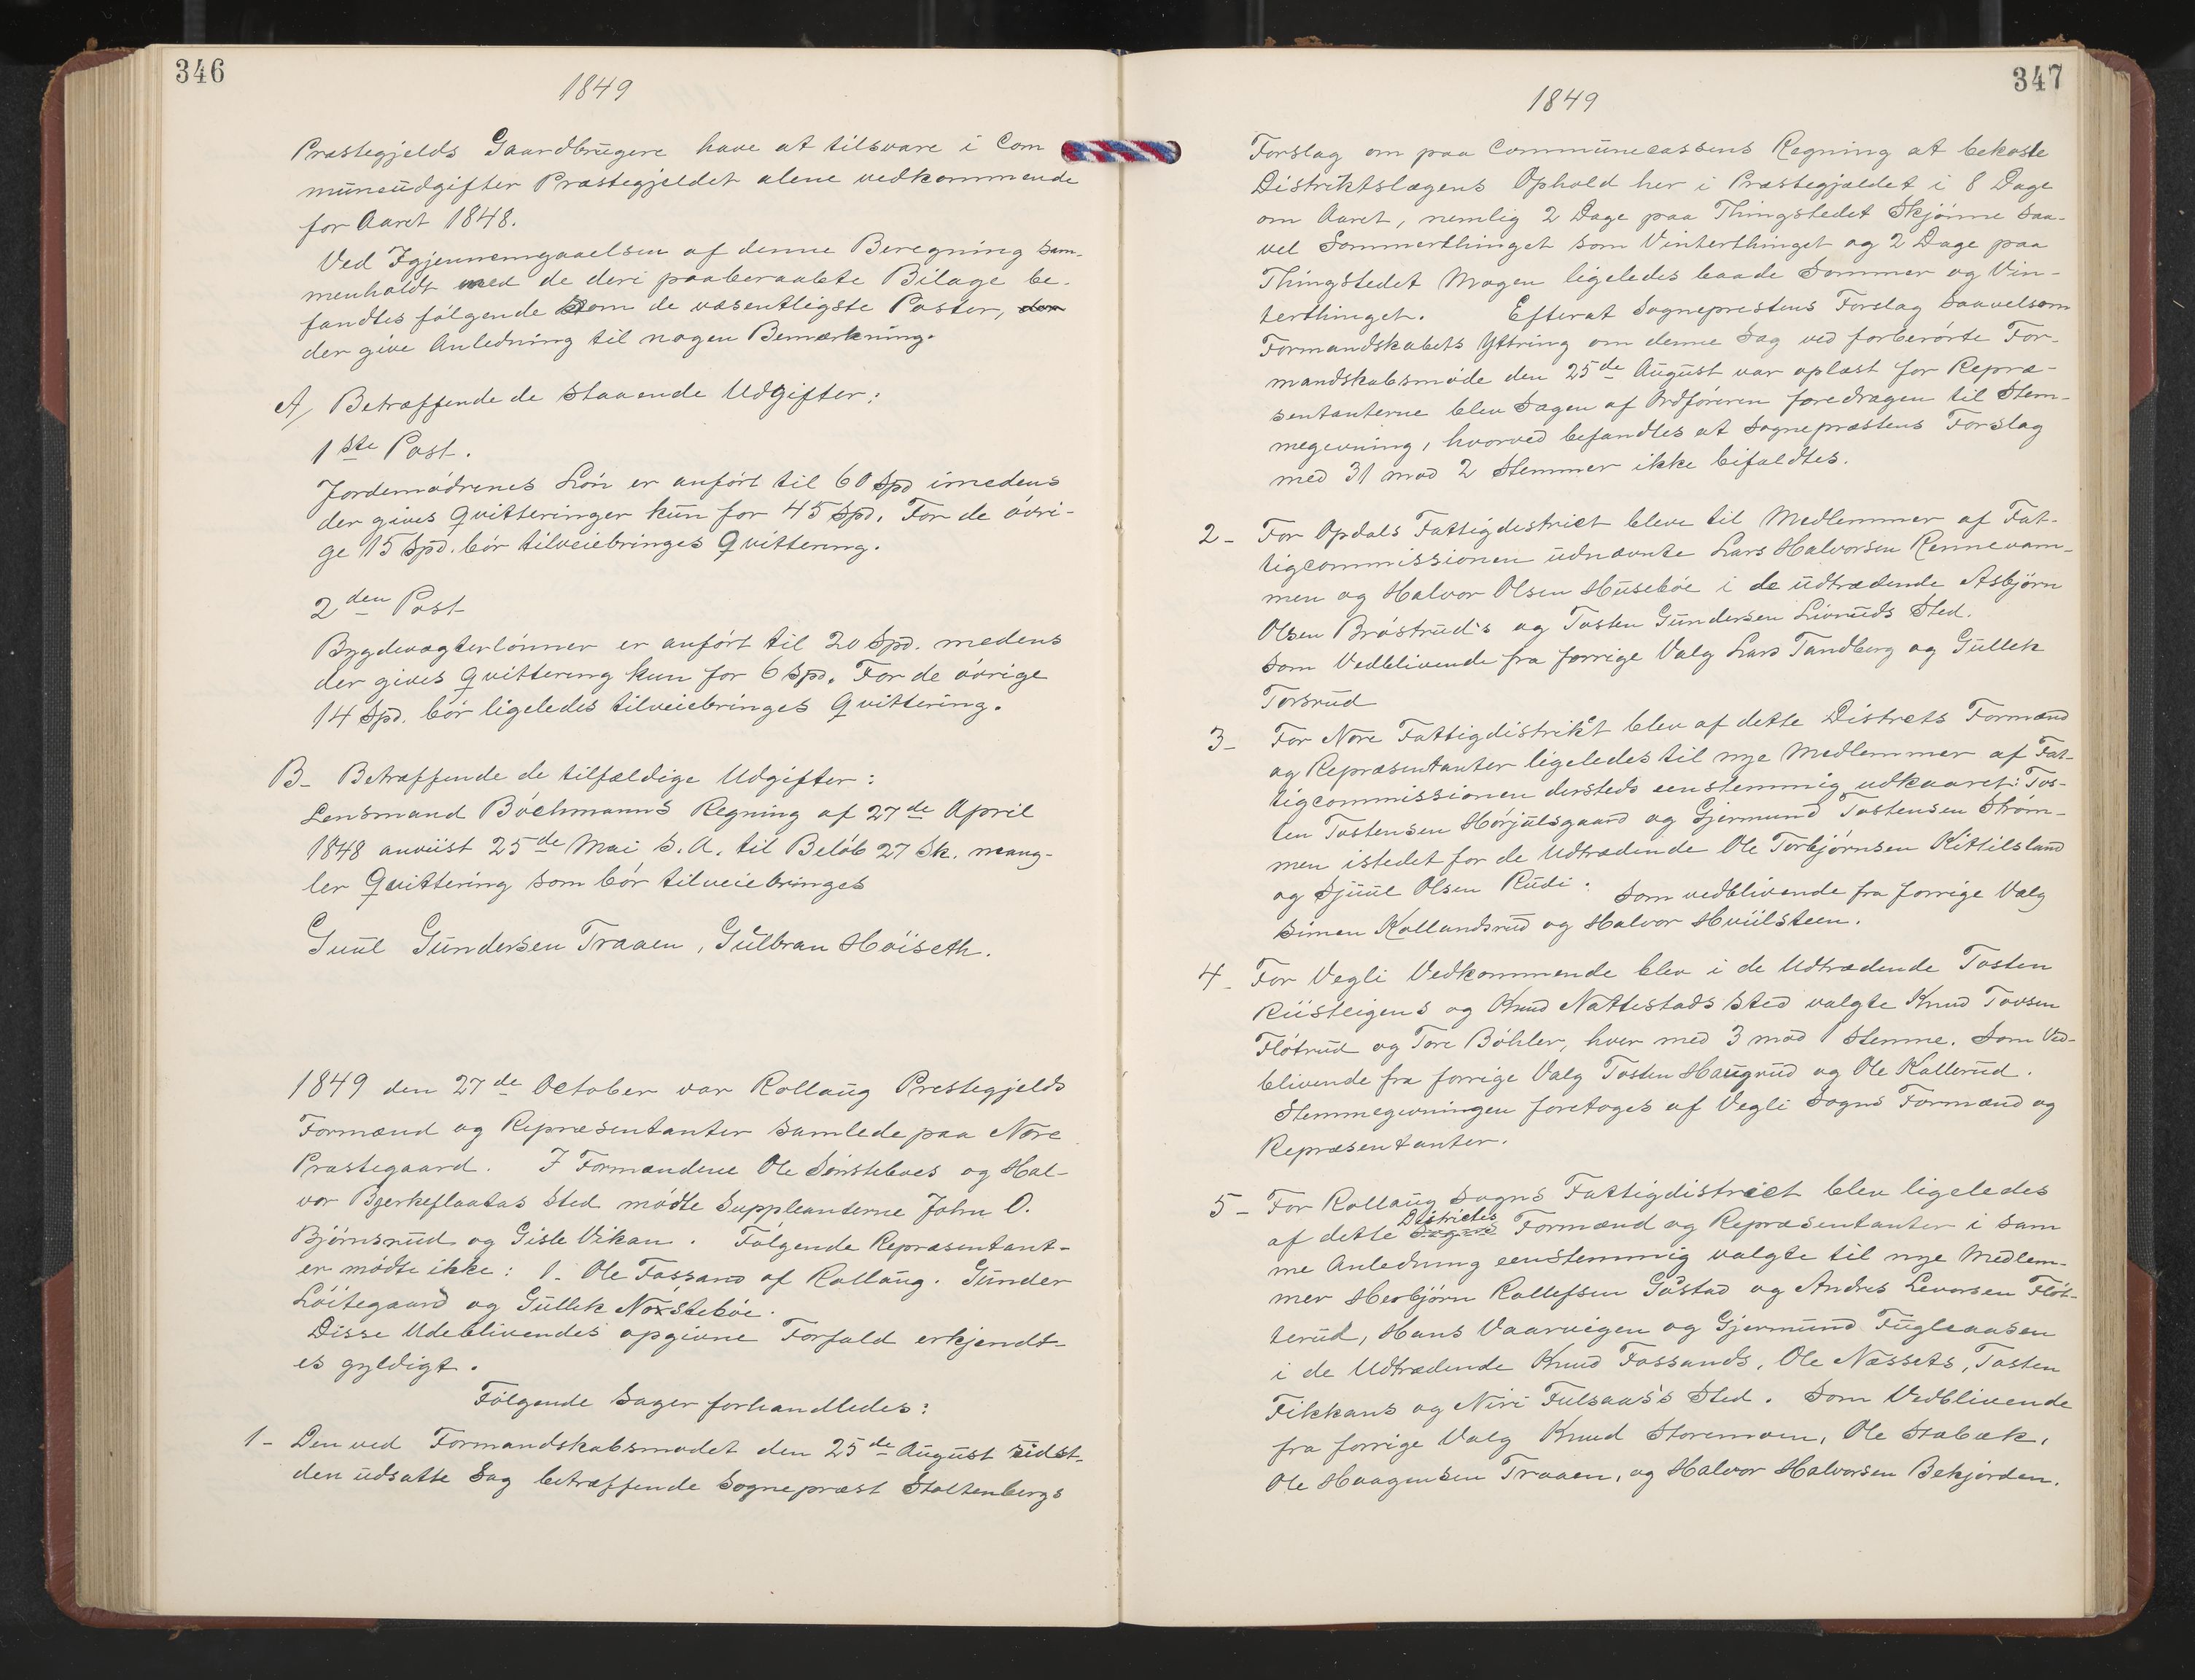 346
1849
Præstegjelds Gaardbrugere have at tilsvare i Com
muneudgifter Præstegjeldet alene vedkommende
for Aaret 1848.
Ved Igjennemgaaelsen af denne Beregning sam-
menholdt med de deri paaberaabte Bilage be-
fandtes følgende som de væsentligste Poster, den
der give Anledning til nogen Bemærkning.
A/ Betræffende de staaende Udgifter:
1ste Post.
Jordemødrenes Løn er anført til 60 Spd imedens
der gives Qvitteringer kun for 45 Spd. For de øvri-
ge 15 Spd. bør tilveiebringes Qvittering.
2den Post
Bygdevægterlønner er anført til 20 Spd. medens
der gives Qvittering kun for 6 Spd. For de øvrige
14 Spd. bør ligeledes tilveiebringes Qvittering.
B- Betræffende de tilfældige Udgifter:
Lensmand Bøchmanns Regning af 27de April
1848 anviist 25de Mai s. A. til Beløb 27 Sk. mang-
ler Qvittering som bør tilveiebringes
Juul Gundersen Traaen, Gulbran Høiseth.
1849 den 27de October var Rollaug Prestegjelds
Formænd og Repræsentanter samlede paa Nore
Præstegaard. I Formændene Ole Sønsteboes og Hal-
vor Bjerkeflaatas Sted mødte Suppleanterne John O.
Bjørnsrud og Gisle Vikan. Følgende Repræsentant-
er mødte ikke: 1. Ole Fossand af Rollaug. Gunder
Løitegaard og Gullik Norstebøe.
Disse Udeblivendes opgivne Forfald erkjendt-
es gyldigt.
Følgende Sager forhandledes:
1- Den ved Formandskabsmødet den 25de August sidst-
den udsatte Sag betræffende Sognepræst Stoltenbergs
347
1849
Forslag om paa Communecassens Regning at bekoste
Distriktslægens Ophold her i Præstegjældet i 8 Dage
om Aaret, nemlig 2 Dage paa Thingstedet Skjønne saa-
vel Sommerthinget som Vinterthinget og 2 Dage paa
Thingstedet Mogen ligeledes baade Sommer og Vin-
terthinget. Efterat Sogneprestens Forslag saavelsom
Formandskabets Yttring om denne Sag ved forberørte For-
mandskabsmøde den 25de August var oplæst for Repræ-
sentanterne blev Sagen af Ordføreren foredragen til Stem-
megevning, hvorved befandtes at Sognepræstens Forslag
med 31 mod 2 Stemmer ikke bifaldtes.
2- For Opdals Fattigdistrict bleve til Medlemmer af Fat-
tigcommissionen udnævnte Lars Halvorsen Rennevam-
men og Halvor Olsen Husebøe i de udtrædende Asbjørn
Olsen Brøstrud's og Tosten Gundersen Livruds Sted.
Som Vedblivende fra forrige Valg Lars Tandberg og Gullek
Torsrud
3- For Nore Fattigdistrikt blev af dette Districts Formænd
og Repræsentanter ligeledes til nye Medlemmer af Fat-
tigcommissionen dersteds eenstemmig udkaaret: Tos-
ten Tostensen Hørjulsgaard og Gjermund Tostensen Strøm-
men istedet for de Udtrædende Ole Torbjørnsen Kittilsland
og Sjuul Olsen Rudi. Som vedblivende fra forrige Valg
Simen Kollandsrud og Halvor Hviilsteen.
4- For Vegli Vedkommende blev i de Udtrædende Tosten
Riisteigens og Knud Nattestads Sted valgte Knud Tovsen
Fløtrud og Tore Bøhler, hver med 3 mod 1 Stemme. Som Ved-
blivende fra forrige Valg Tosten Haugrud og Ole Kallerud.
Stemmegevningen foretoges af Vegli Sogns Formænd og
Repræsentanter.
5- For Rollaug Sogns Fattigdistrict blev ligeledes
af dette Sogns Districtes Formænd og Repræsentanter i sam
me Anledning eenstemmig valgte til nye Medlem-
mer Herbjørn Rollefsen Gåstad og Andres Levorsen Fløt-
terud, Hans Vaarveigen og Gjermund Fugleaasen
i de Udtrædende Knud Fossands, Ole Næssets, Tosten
Fikkans og Niri Fulsaas's Sted. Som Vedblivende
fra forrige Valg Knud Storemoen, Ole Stabæk,
Ole Haagensen Traaen, og Halvor Halvorsen Bekjorden.